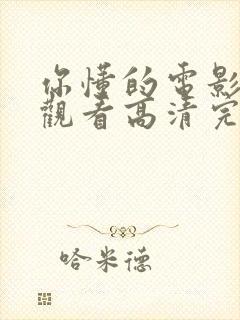 你懂的电影
觀看高清完
哈米德